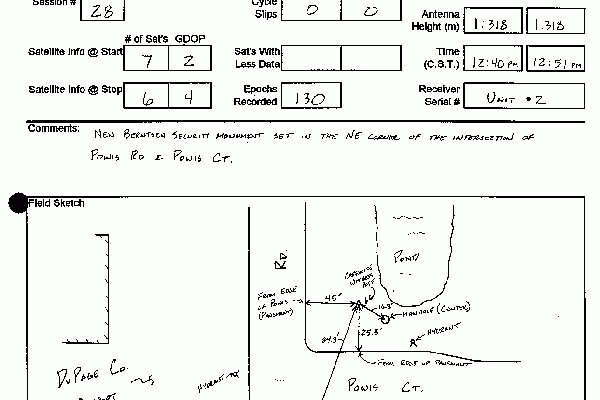 Session # 28
Cycle Slips 0 0
Antenna Height (m) 1.318 1.318
# of Sat's GDOP
Satellite Info @ Start 7 2
Sat's With Less Data
Time (C.S.T.) 12:40 PM 12:51 PM
Satellite Info @ Stop 6 4
Epochs Recorded 130
Receiver Serial # UNIT #2
Comments: NEW BERNTSEN SECURITY MONUMENT SET IN THE NE CORNER OF THE INTERSECTION OF
POWIS RD & POWIS CT.
Field Sketch
RD.
POND
WITNESS
FROM EDGE OF POWIS (PAVEMENT)
45'
MANHOLE (CENTER)
HYDRANT
25.5'
FROM EDGE OF PAVEMENT
DUPAGE CO.
POWIS CT.